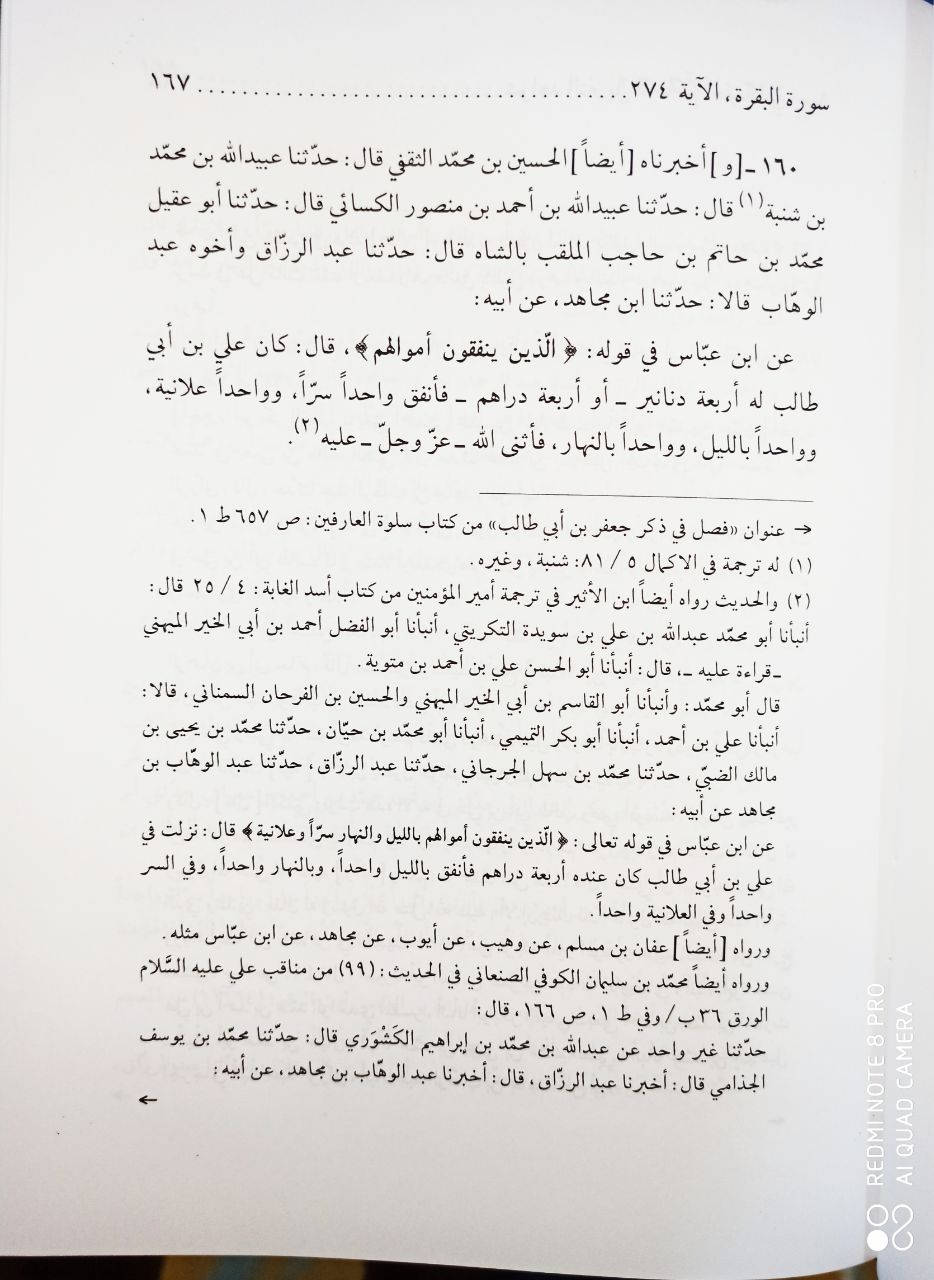 سورة البقرة، الآية ٢٧٤ ........................................ ١٦٧
١٦٠ ـ [و] أخبرناه [أيضاً] الحسين بن محمّد الثقفي قال: حدّثنا عبيدالله بن محمّد
بن شنبة(١) قال: حدّثنا عبيدالله بن أحمد بن منصور الكسائي قال: حدّثنا أبو عقيل
محمّد بن حاتم بن حاجب الملقب بالشاه قال: حدّثنا عبد الرزّاق وأخوه عبد
الوهّاب قالا: حدّثنا ابن مجاهد، عن أبيه:
عن ابن عبّاس في قوله: ﴿ الّذين ينفقون أموالهم ﴾، قال: كان علي بن أبي
طالب له أربعة دنانير ـ أو أربعة دراهم ـ فأنفق واحداً سرّاً، وواحداً علانية،
وواحداً بالليل، وواحداً بالنهار، فأثنى الله ـ عزّ وجلّ ـ عليه(٢).
→ عنوان «فصل في ذكر جعفر بن أبي طالب» من كتاب سلوة العارفين: ص ٦٥٧ ط ١.
(١) له ترجمة في الاكمال ٥ / ٨١: شنبة، وغيره.
(٢) والحديث رواه أيضاً ابن الأثير في ترجمة أمير المؤمنين من كتاب أسد الغابة: ٤ / ٢٥ قال:
أنبأنا أبو محمّد عبدالله بن علي بن سويدة التكريتي، أنبأنا أبو الفضل أحمد بن أبي الخير الميهني
ـ قراءة عليه ـ، قال: أنبأنا أبو الحسن علي بن أحمد بن متوية.
قال أبو محمّد: وأنبأنا أبو القاسم بن أبي الخير الميهني والحسين بن الفرحان السمناني، قالا:
أنبأنا علي بن أحمد، أنبأنا أبو بكر التميمي، أنبأنا أبو محمّد بن حيّان، حدّثنا محمّد بن يحيى بن
مالك الضبّي، حدّثنا محمّد بن سهل الجرجاني، حدّثنا عبد الرزّاق، حدّثنا عبد الوهّاب بن
مجاهد عن أبيه:
عن ابن عبّاس في قوله تعالى: ﴿ الّذين ينفقون أموالهم بالليل والنهار سرّاً وعلانية ﴾ قال: نزلت في
علي بن أبي طالب كان عنده أربعة دراهم فأنفق بالليل واحداً، وبالنهار واحداً، وفي السر
واحداً وفي العلانية واحداً.
ورواه [أيضاً] عفان بن مسلم، عن وهيب، عن أيوب، عن مجاهد، عن ابن عبّاس مثله.
ورواه أيضاً محمّد بن سليمان الكوفي الصنعاني في الحديث: (٩٩) من مناقب علي عليه السَّلام
الورق ٣٦ ب / وفي ط ١، ص ١٦٦، قال:
حدّثنا غير واحد عن عبدالله بن محمّد بن إبراهيم الكَشْوَري قال: حدّثنا محمّد بن يوسف
الجذامي قال: أخبرنا عبد الرزّاق، قال: أخبرنا عبد الوهّاب بن مجاهد، عن أبيه:
←
REDMI NOTE 8 PRO
AI QUAD CAMERA